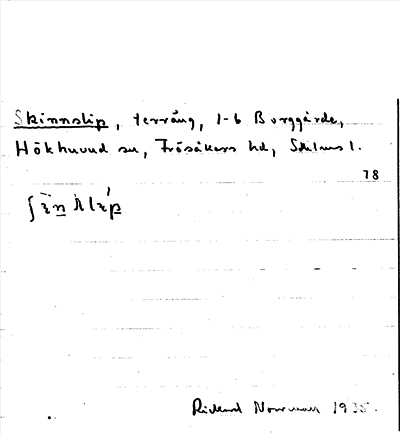 Skinnslip, terräng, 1-6 Burggärde,
Hökhuvud sn, Frösåkers hd, Sthlms l.
78
Rickard Norrman 1935.